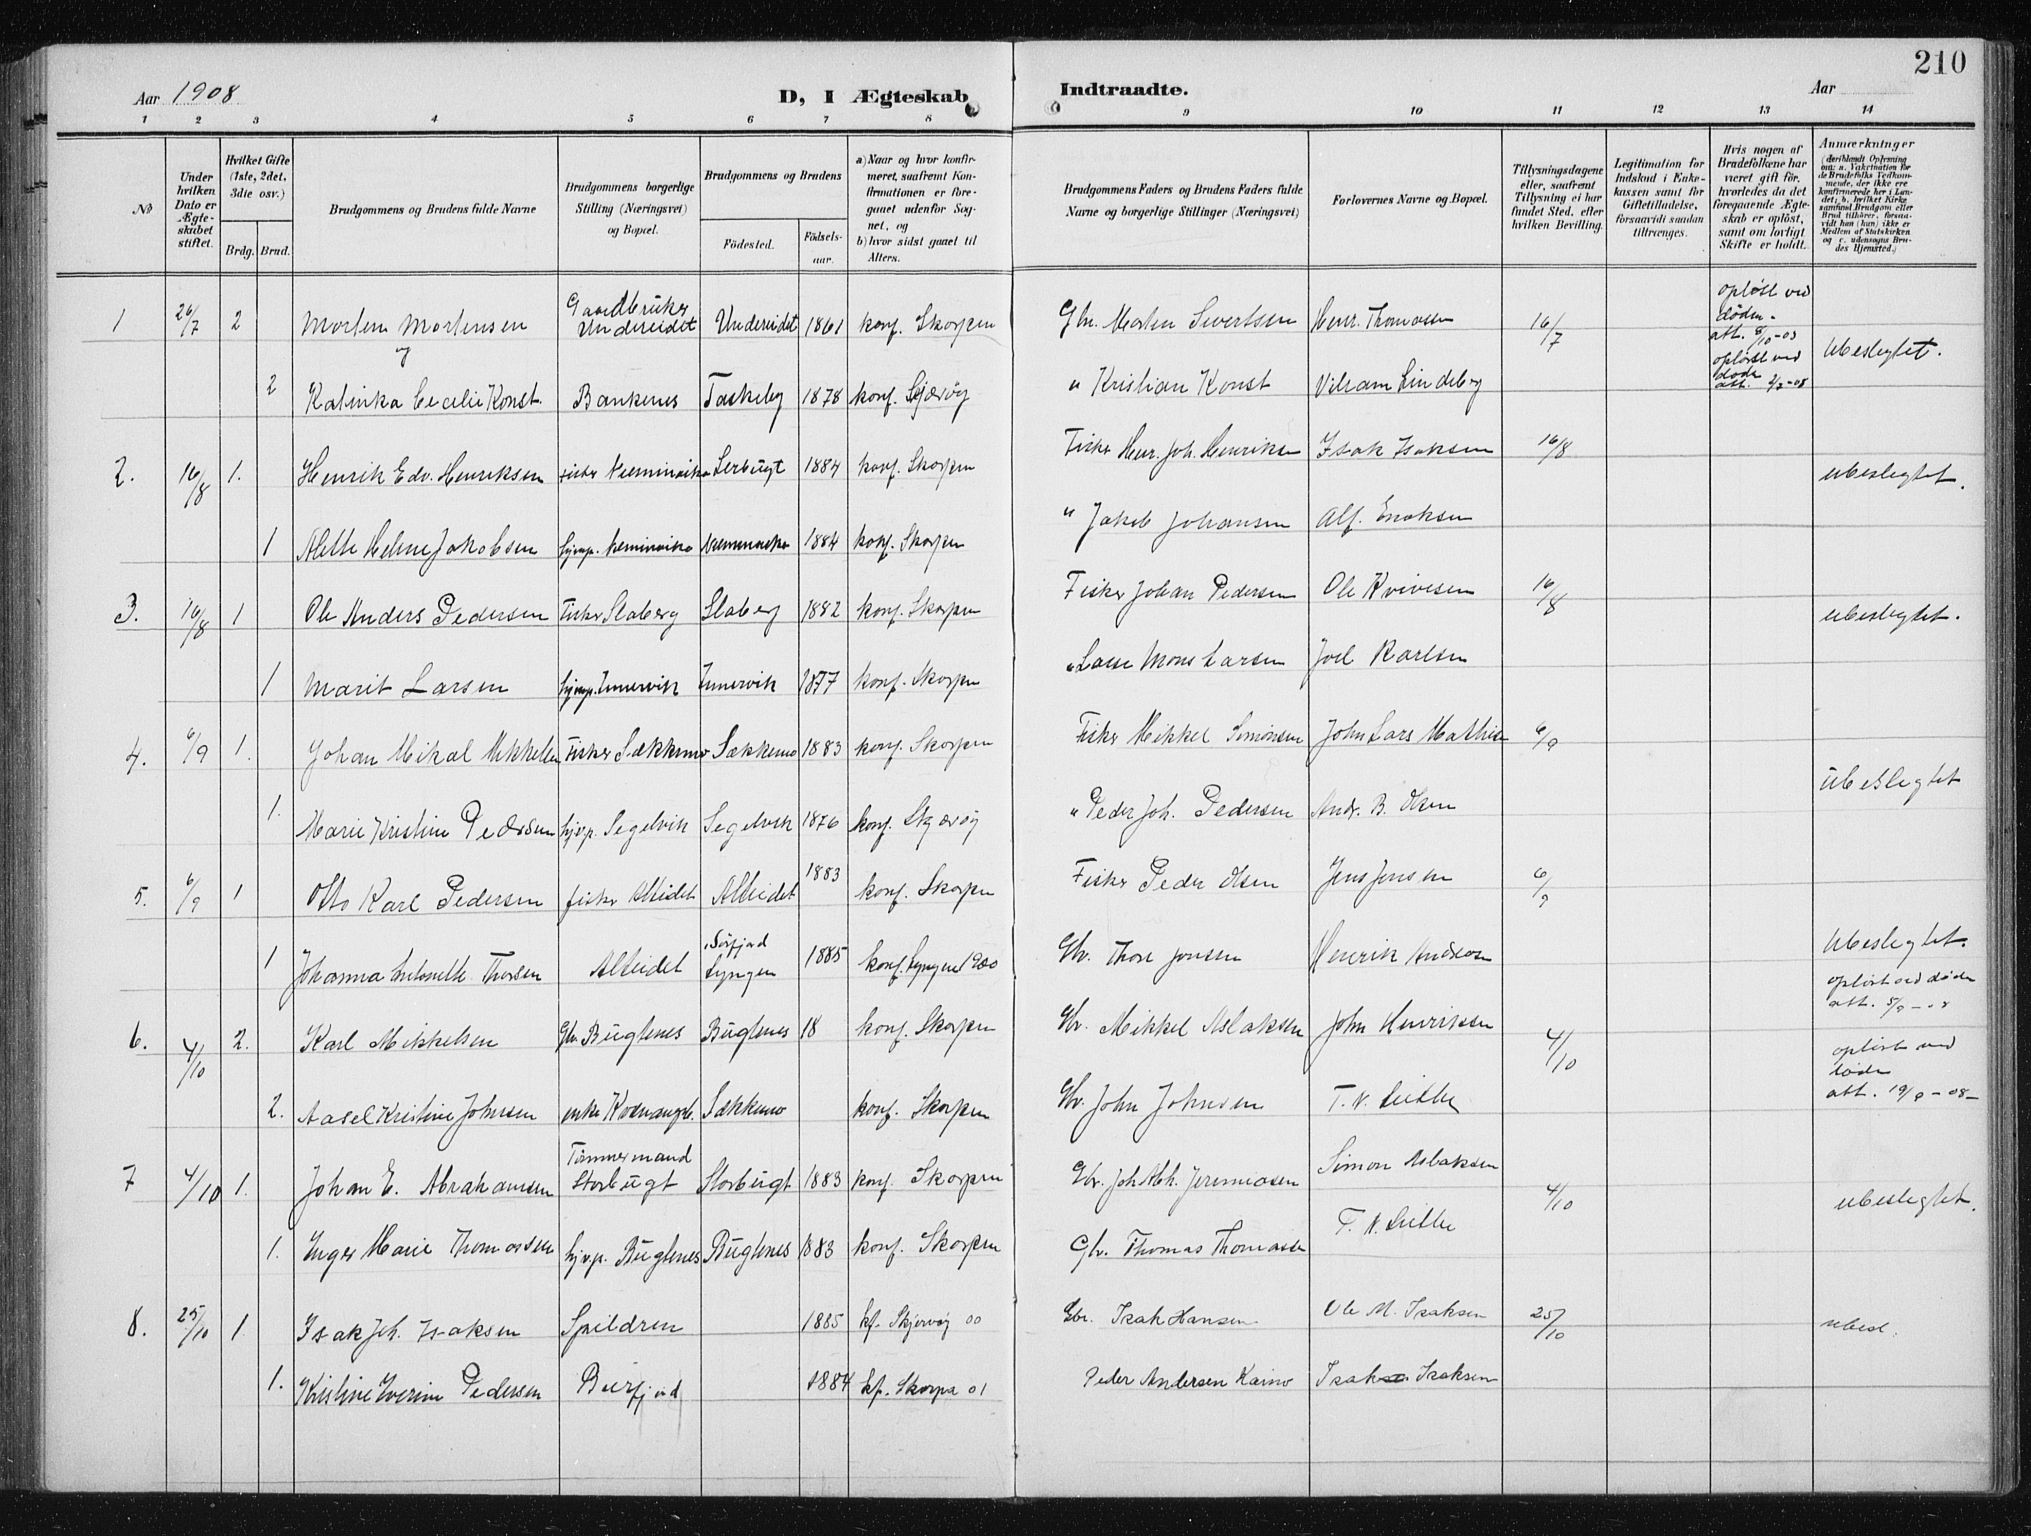 210
Aar 1908 D, I Ægteskab Indtraadte. Aar
1 2 3 4 5 6 7 8 9 10 11 12 13 14
No
Under hvilken Dato er Ægteskabet stiftet.
Hvilket Gifte (1ste, 2det, 3die osv.)
Brdg. Brud.
Brudgommens og Brudens fulde Navne
Brudgommens borgerlige Stilling (Næringsvei) og Bopæl.
Brudgommens og Brudens
Födested. Födselsaar.
a) Naar og hvor konfirmeret, saafremt Konfirmationen er foregaaet udenfor Sognet, og
b) hvor sidst gaaet til Alters.
Brudgommens Faders og Brudens Faders fulde Navne og borgerlige Stillinger (Næringsvei)
Forlovernes Navne og Bopæl.
Tillysningsdagene eller, saafremt Tillysning ei har fundet Sted, efter hvilken Bevilling.
Legitimation for Indskud i Enkekassen samt for Giftetilladelse, forsaavidt saadan tiltrænges.
Hvis nogen af Brudefolkene har været gift för, hvorledes da det foregaaende Ægteskab er oplöst, samt om lovligt Skifte er holdt.
Anmærkninger (deriblandt Oplysning om: a. Vakcination för de Brudefolks Vedkommende, der ikke ere konfirmerede her i Landet; b. hvilket Kirkesamfund Brudgom eller Brud tilhörer, forsaavidt han (hun) ikke er Medlem af Statskirken og c. udensogns Brudes Hjemsted.)
1 26/7 2 Morten Mortensen Gaardbruker Undereidet Undereidet 1861 konf. Skorpen Gbr. Morten Sivertsen Henr. Thomassen 16/7 opløst ved døden. att. 8/10-03
og
2 Katinka Cecilie Konst. Bankenes Taskeby 1878 konf. Skjærvøy " Kristian Konst Vilram Lindeberg opløst ved døde att. 2/7-08 Ubeslegtet.
2. 16/8 1. Henrik Edv. Henriksen fisker Neeminaika Lerbugt 1884 konf. Skorpen Fisker Henr. Joh. Henriksen Isak Isaksen 16/8 ubeslegtet.
1 Alette Helene Jakobsen hjvp. Neminaika 1884 konf. Skorpen " Jakob Johansen Alf. Enoksen
3. 16/8 1 Ole Anders Pedersen Fisker Slaberg Slaberg 1882 konf. Skorpen Fisker Johan Pedersen Ole Kvivesen 16/8 ubeslegtet.
1 Marit Larsen hjvp. Innervik Innervik 1877 konf. Skorpen " Lasse Mons Larsen Joel Karlsen
4. 6/9 1. Johan Mikal Mikkelsen Fisker Sækkemo Sækkemo 1883 konf. Skorpen Fisker Mikkel Simonsen John Lars Mathisen 6/9 Ubeslegtet
1. Marie Kristine Pedersen hjvp. Segelvik Segelvik 1876 konf. Skjærvøy " Peder Joh. Pedersen Andr. B. Olsen
5. 6/9 1 Otto Karl Pedersen fisker Alteidet Alteidet 1883 konf. Skorpen Fisker Peder Olsen Jens Jensen 6/9
1 Johanna Antonette Thorsen Alteidet Sørfjord Lyngen 1885 konf. Lyngen 1900 Gbr. Thore Jonsen Henrik Andreasen Ubeslegtet.
6. 4/10 2. Karl Mikkelsen Gbr. Buglenes Buglenes 18 konf. Skorpen Gbr. Mikkel Aslaksen John Henriksen 4/10 opløst ved døden att. 5/9-08
2. Aasel Kristine Johnsen enke Kvænangsb. Sækkemo konf. Skorpen Gbr. John Johnsen opløst ved døde att. 19/9-08-
7 4/10 1. Johan E. Abrahamsen Tømmermand Storbugt Storbugt 1883 konf. Skorpen Gbr. Joh Abh. Jeremiasen Simon Aslaksen 4/10 ubeslegtet.
1. Inger Marie Thomassen hjvp. Buglenes Buglenes 1883 konf. Skorpen Gbr. Thomas Thomassen
8. 25/10 1. Isak Joh. Isaksen Spildren 1885 kf. Skjervøy 00 Gbr. Isak Hansen Ole M. Isaksen 25/10 ubesl.
1. Kristine Iverine Pedersen Burfjord 1884 kf. Skorpa 01 Peder Andersen Kaino Isak Isaksen